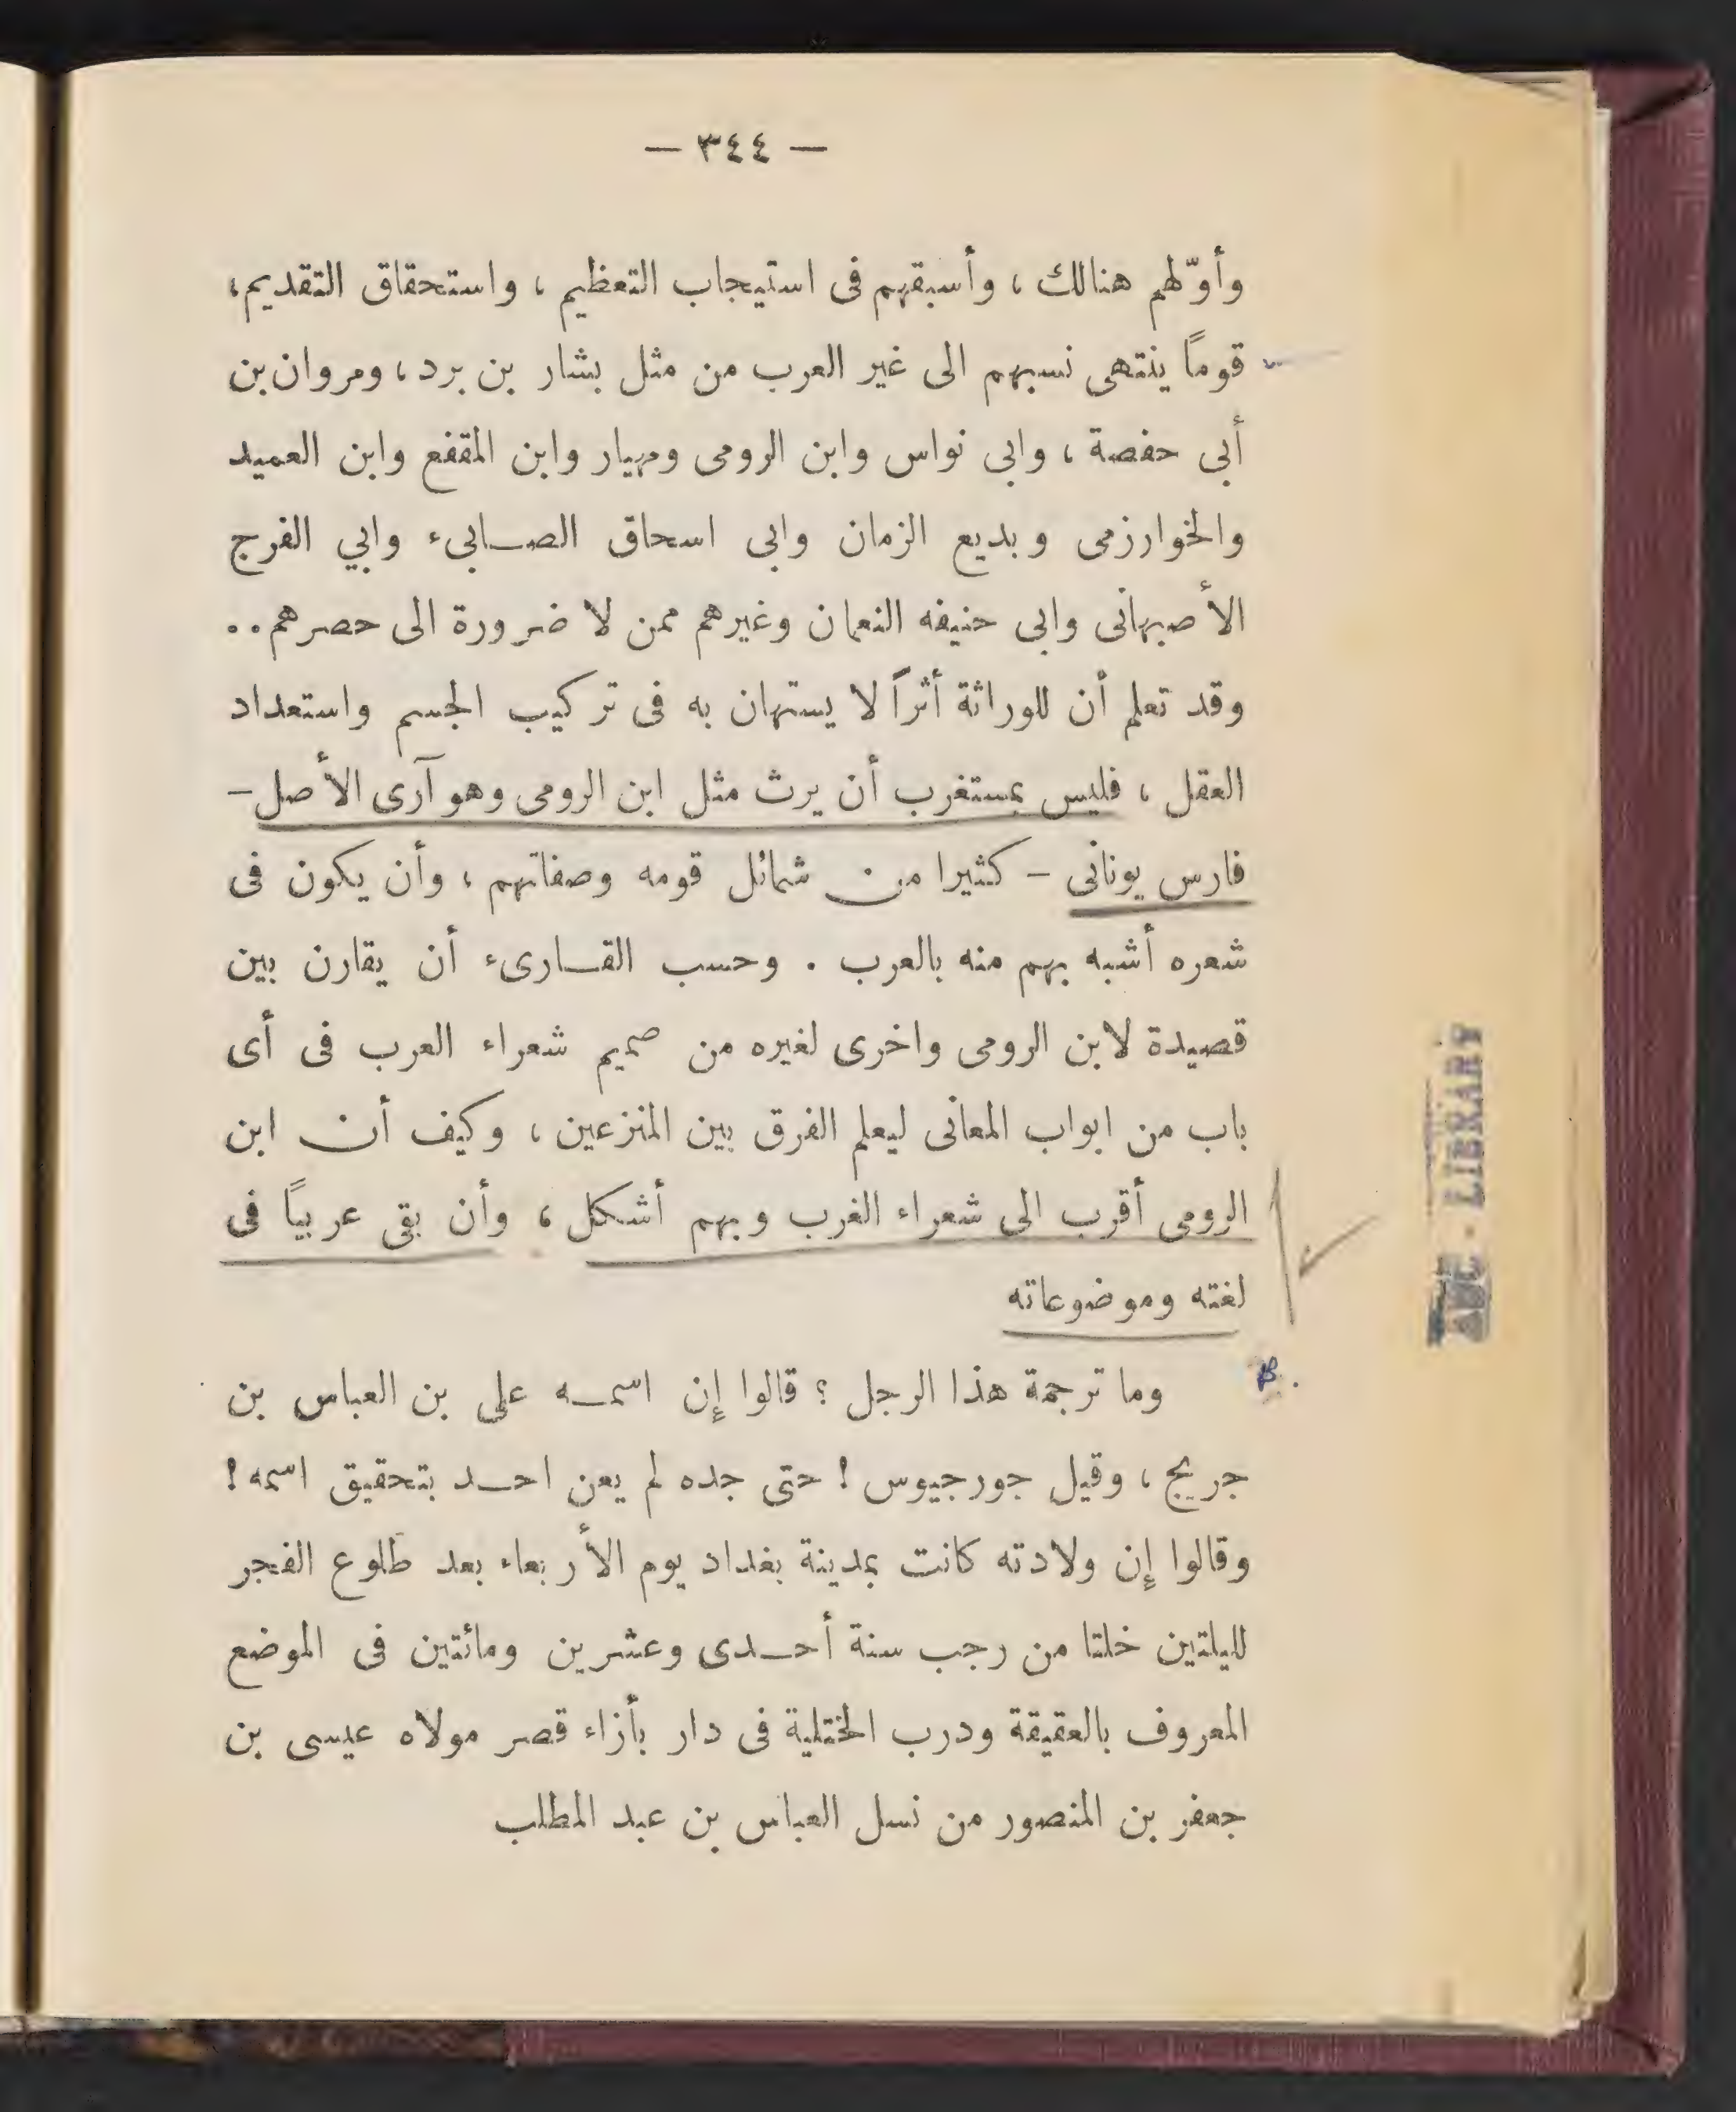 — ٣٤٤ —
وأوّلهم هنالك ، وأسبقهم فى استيجاب التعظيم ، واستحقاق التقديم،
قوماً ينتهى نسبهم الى غير العرب من مثل بشار بن برد ، ومروان بن
أبى حفصة ، وابى نواس وابن الرومى ومهيار وابن المقفع وابن العميد
والخوارزمى وبديع الزمان وابى اسحاق الصـابىء وابي الفرج
الأصبهانى وابى حنيفه النعمان وغيرهم ممن لا ضرورة الى حصرهم..
وقد تعلم أن للوراثة أثراً لا يستهان به فى تركيب الجسم واستعداد
العقل ، فليس بمستغرب أن يرث مثل ابن الرومى وهو آرى الأصل –
فارس يونانى – كثيرا من شمائل قومه وصفاتهم ، وأن يكون فى
شعره أشبه بهم منه بالعرب . وحسب القـارىء أن يقارن بين
قصيدة لابن الرومى واخرى لغيره من صميم شعراء العرب فى أى
باب من ابواب المعانى ليعلم الفرق بين المنزعين ، وكيف أن ابن
الرومى أقرب الى شعراء الغرب وبهم أشكل ، وأن بقى عربياً فى
لغته وموضوعاته
وما ترجمة هذا الرجل ؟ قالوا إن اسمـه على بن العباس بن
جريج ، وقيل جورجيوس ! حتى جده لم يعن احـد بتحقيق اسمه !
وقالوا إن ولادته كانت بمدينة بغداد يوم الأربعاء بعد طلوع الفجر
لليلتين خلتا من رجب سنة أحـدى وعشرين ومائتين فى الموضع
المعروف بالعقيقة ودرب الختلية فى دار بأزاء قصر مولاه عيسى بن
جعفر بن المنصور من نسل العباس بن عبد المطلب
AUC - LIBRARY